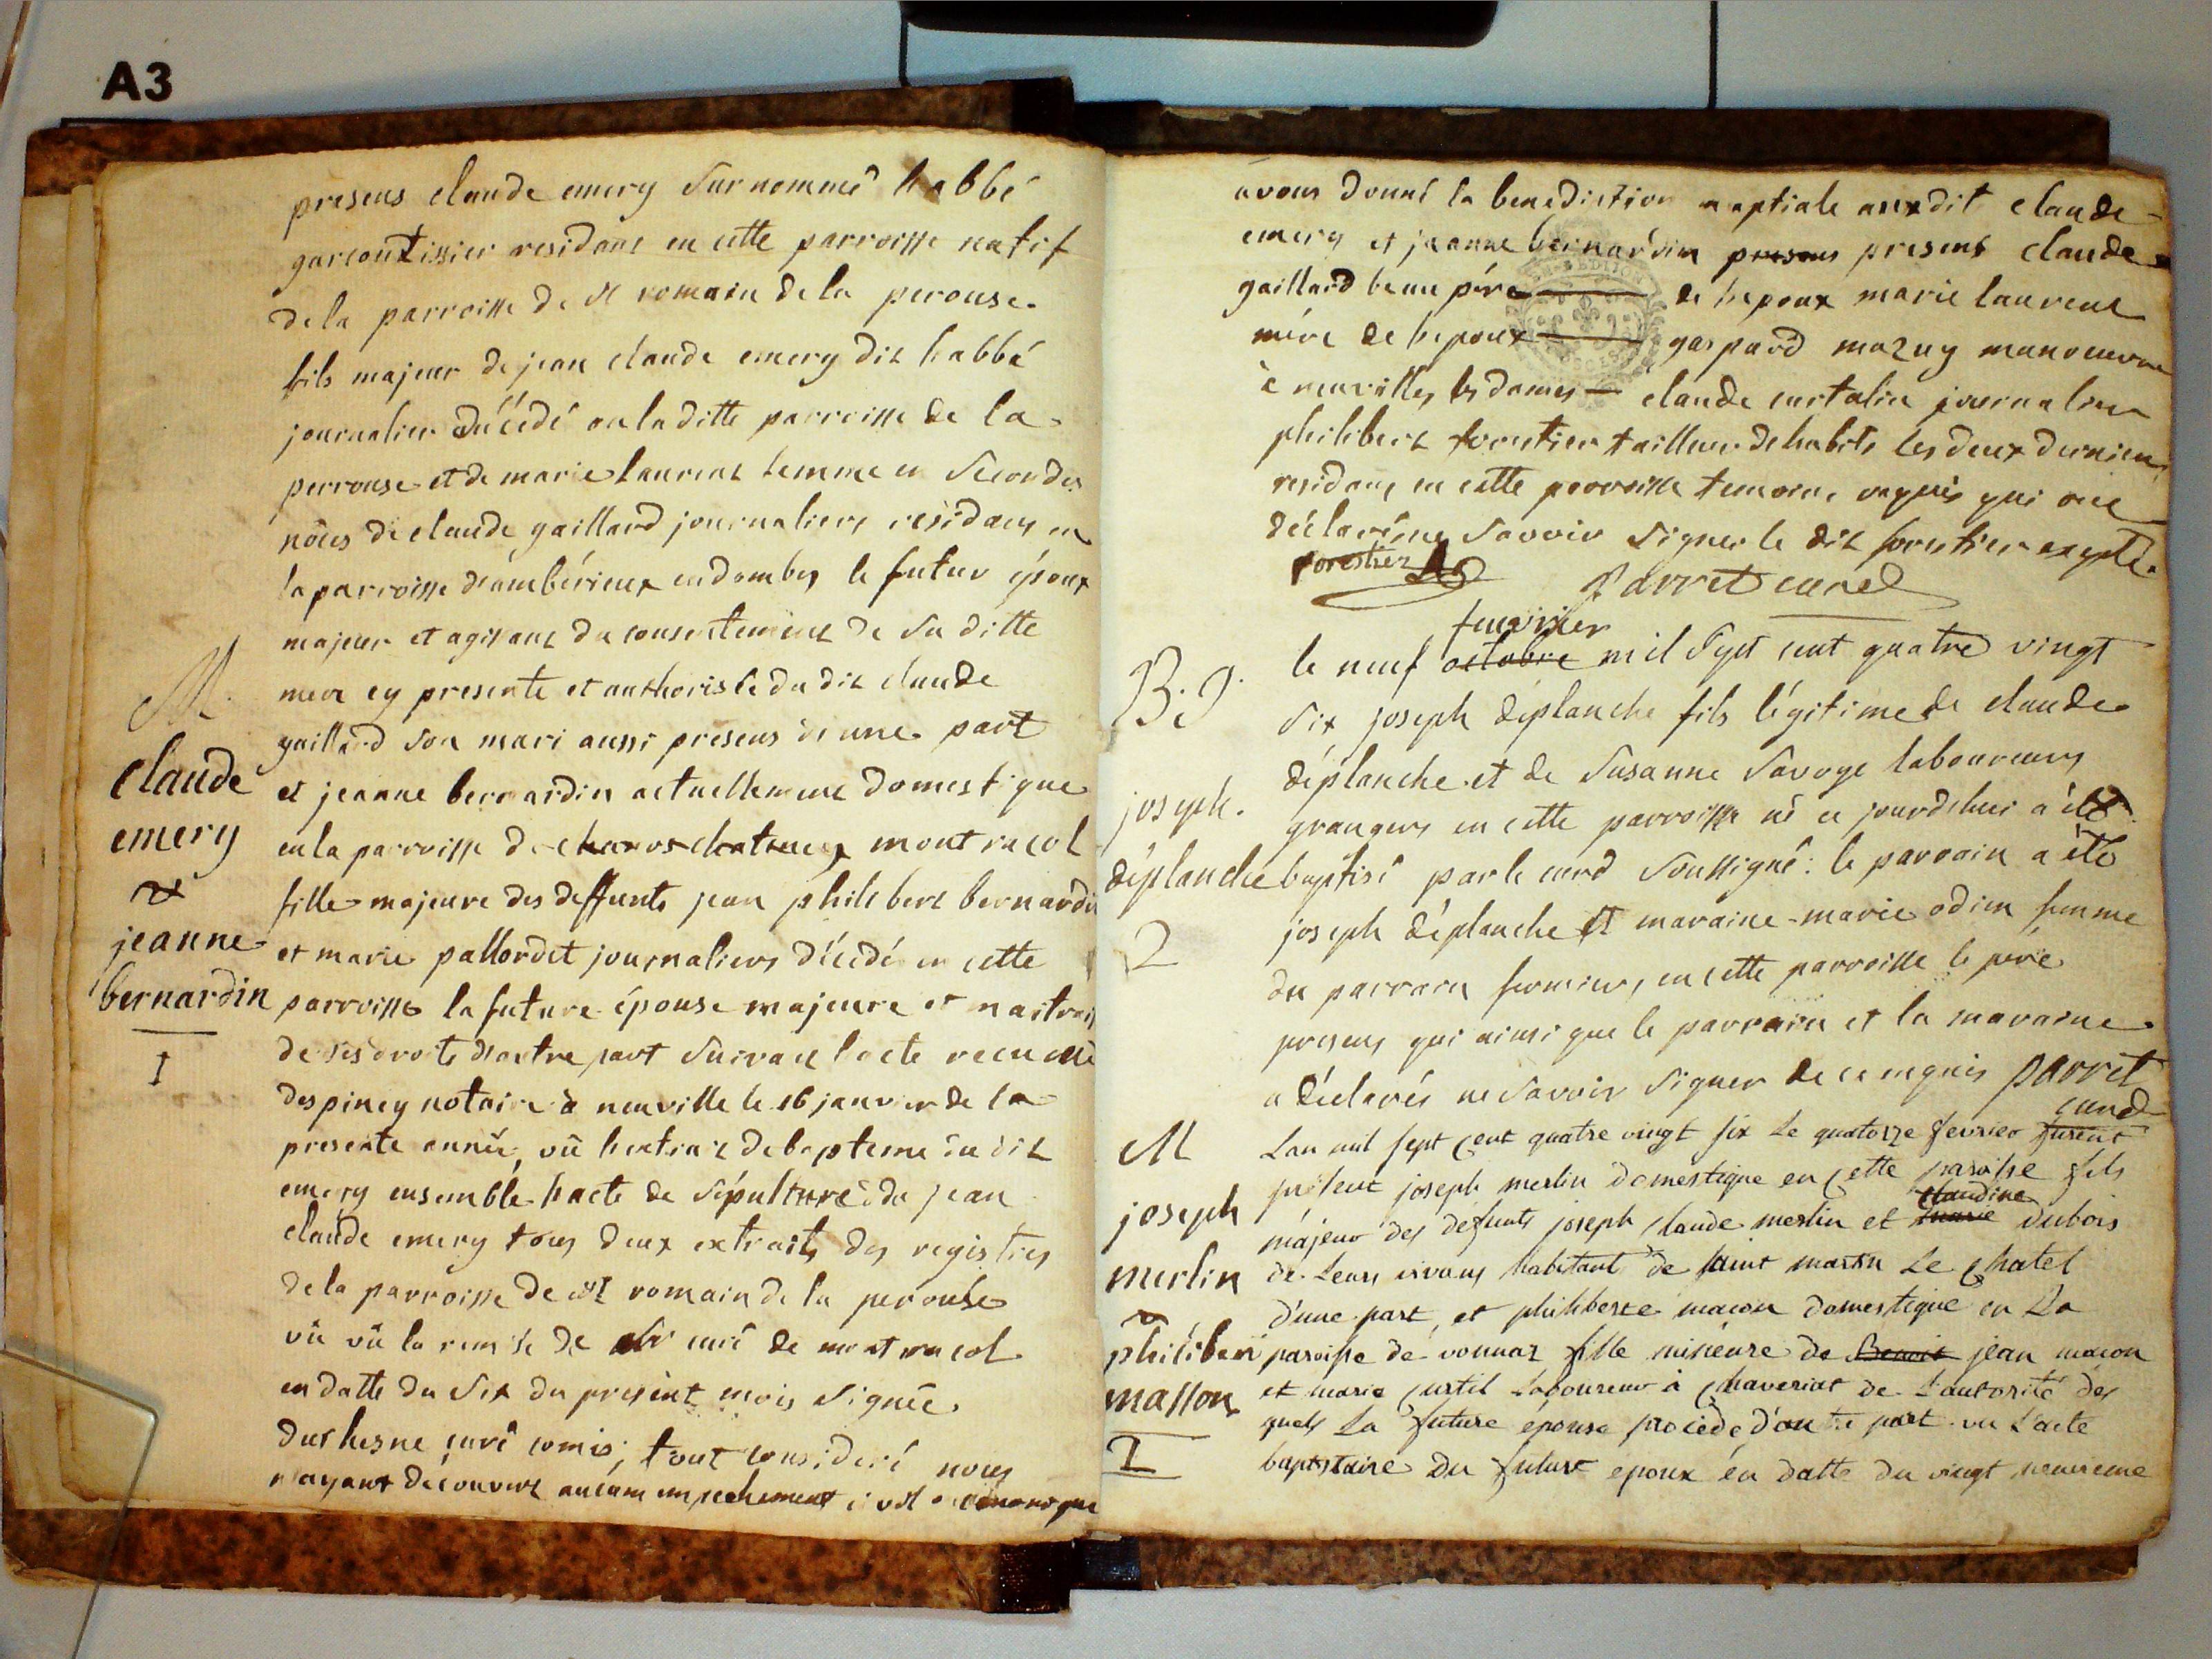 A3
presens claude emery Surnommé labbé
garcon tissier residant en cette parroisse natif
de la parroisse de st romain de la perouse
fils majeur de jean claude emery dit labbé
journalier décédé en la ditte parroisse de la
perrouse et de marie laurent femme en Secondes
nôces de claude gaillard journaliers résidans en
la parroisse d'ambérieux en dombes le futur époux
majeur et agissant du consentement de Sa ditte
mere cy presente et authorisée du dit claude
gaillard Son mari aussi presens d'une part
et jeanne bernardin actuellement domestique
en la parroisse de montracol
fille majeure des deffunts jean philibert bernardin
et marie pallordet journaliers décédé en cette
parroisse la future épouse majeure et maitresse
de ses droits d'autre part Suivant l'acte recu
despiney notaire à neuville le 16 janvier de la
presente année, vû l'extrait de bapteme du dit
emery ensemble l'acte de sépulture du jean
claude emery tous deux extraits des registres
de la parroisse de st romain de la perouse
vû vû la remise de curé de montracol
en datte du Six du present mois Signée
duchesne curé comis; tout consideré nous
n'ayant découvert aucun empechement civil
M.
claude
emery
&
jeanne
bernardin
1
avons donné la benediction nuptiale auxdit claude
emery et jeanne bernardin presens presens claude
gaillard beau pére de l'epoux marie laurent
mére de l'epoux gaspard mazuy manoeuvre
à neuville les dames claude curtalin journalier
philibert forestier tailleur d'habits les deux derniers
residans en cette parroisse temoins requis qui ont
déclaré ne Savoir Signer le dit forestier excepté.
forestier Parret curé
feuvrier
le neuf octobre mil Sept cent quatre vingt
Six joseph déplanche fils légitime de claude
déplanche et de Susanne Savoye laboureurs
grangers en cette parroisse né ce jourd'hui a été
baptisé par le curé Soussigné: le parrain a été
joseph déplanche et maraine marie odin femme
du parrain fermiers en cette parroisse le pére
presens qui ainsi que le parrain et la maraine
a déclarés ne Savoir Signer de ce enquis parret
curé
B. 9.
joseph.
déplanche
2
Lan mil sept cent quatre vingt six Le quatorze fevrier furent
present joseph merlin domestique en cette paroisse fils
claudine
majeur des defunts joseph claude merlin et marie dubois
de Leurs vivans habitant de saint martin Le chatel
d'une part, et philiberte maçon domestique en La
paroisse de vonnaz fille mineure de Benoit jean maçon
et marie curtil Laboureur à chaveriat de L'autorité des
quels La future épouse procède d'autre part vu L'acte
baptistaire du futur epoux en datte du vingt neuvieme
M
joseph
merlin
&
philiber
masson
1